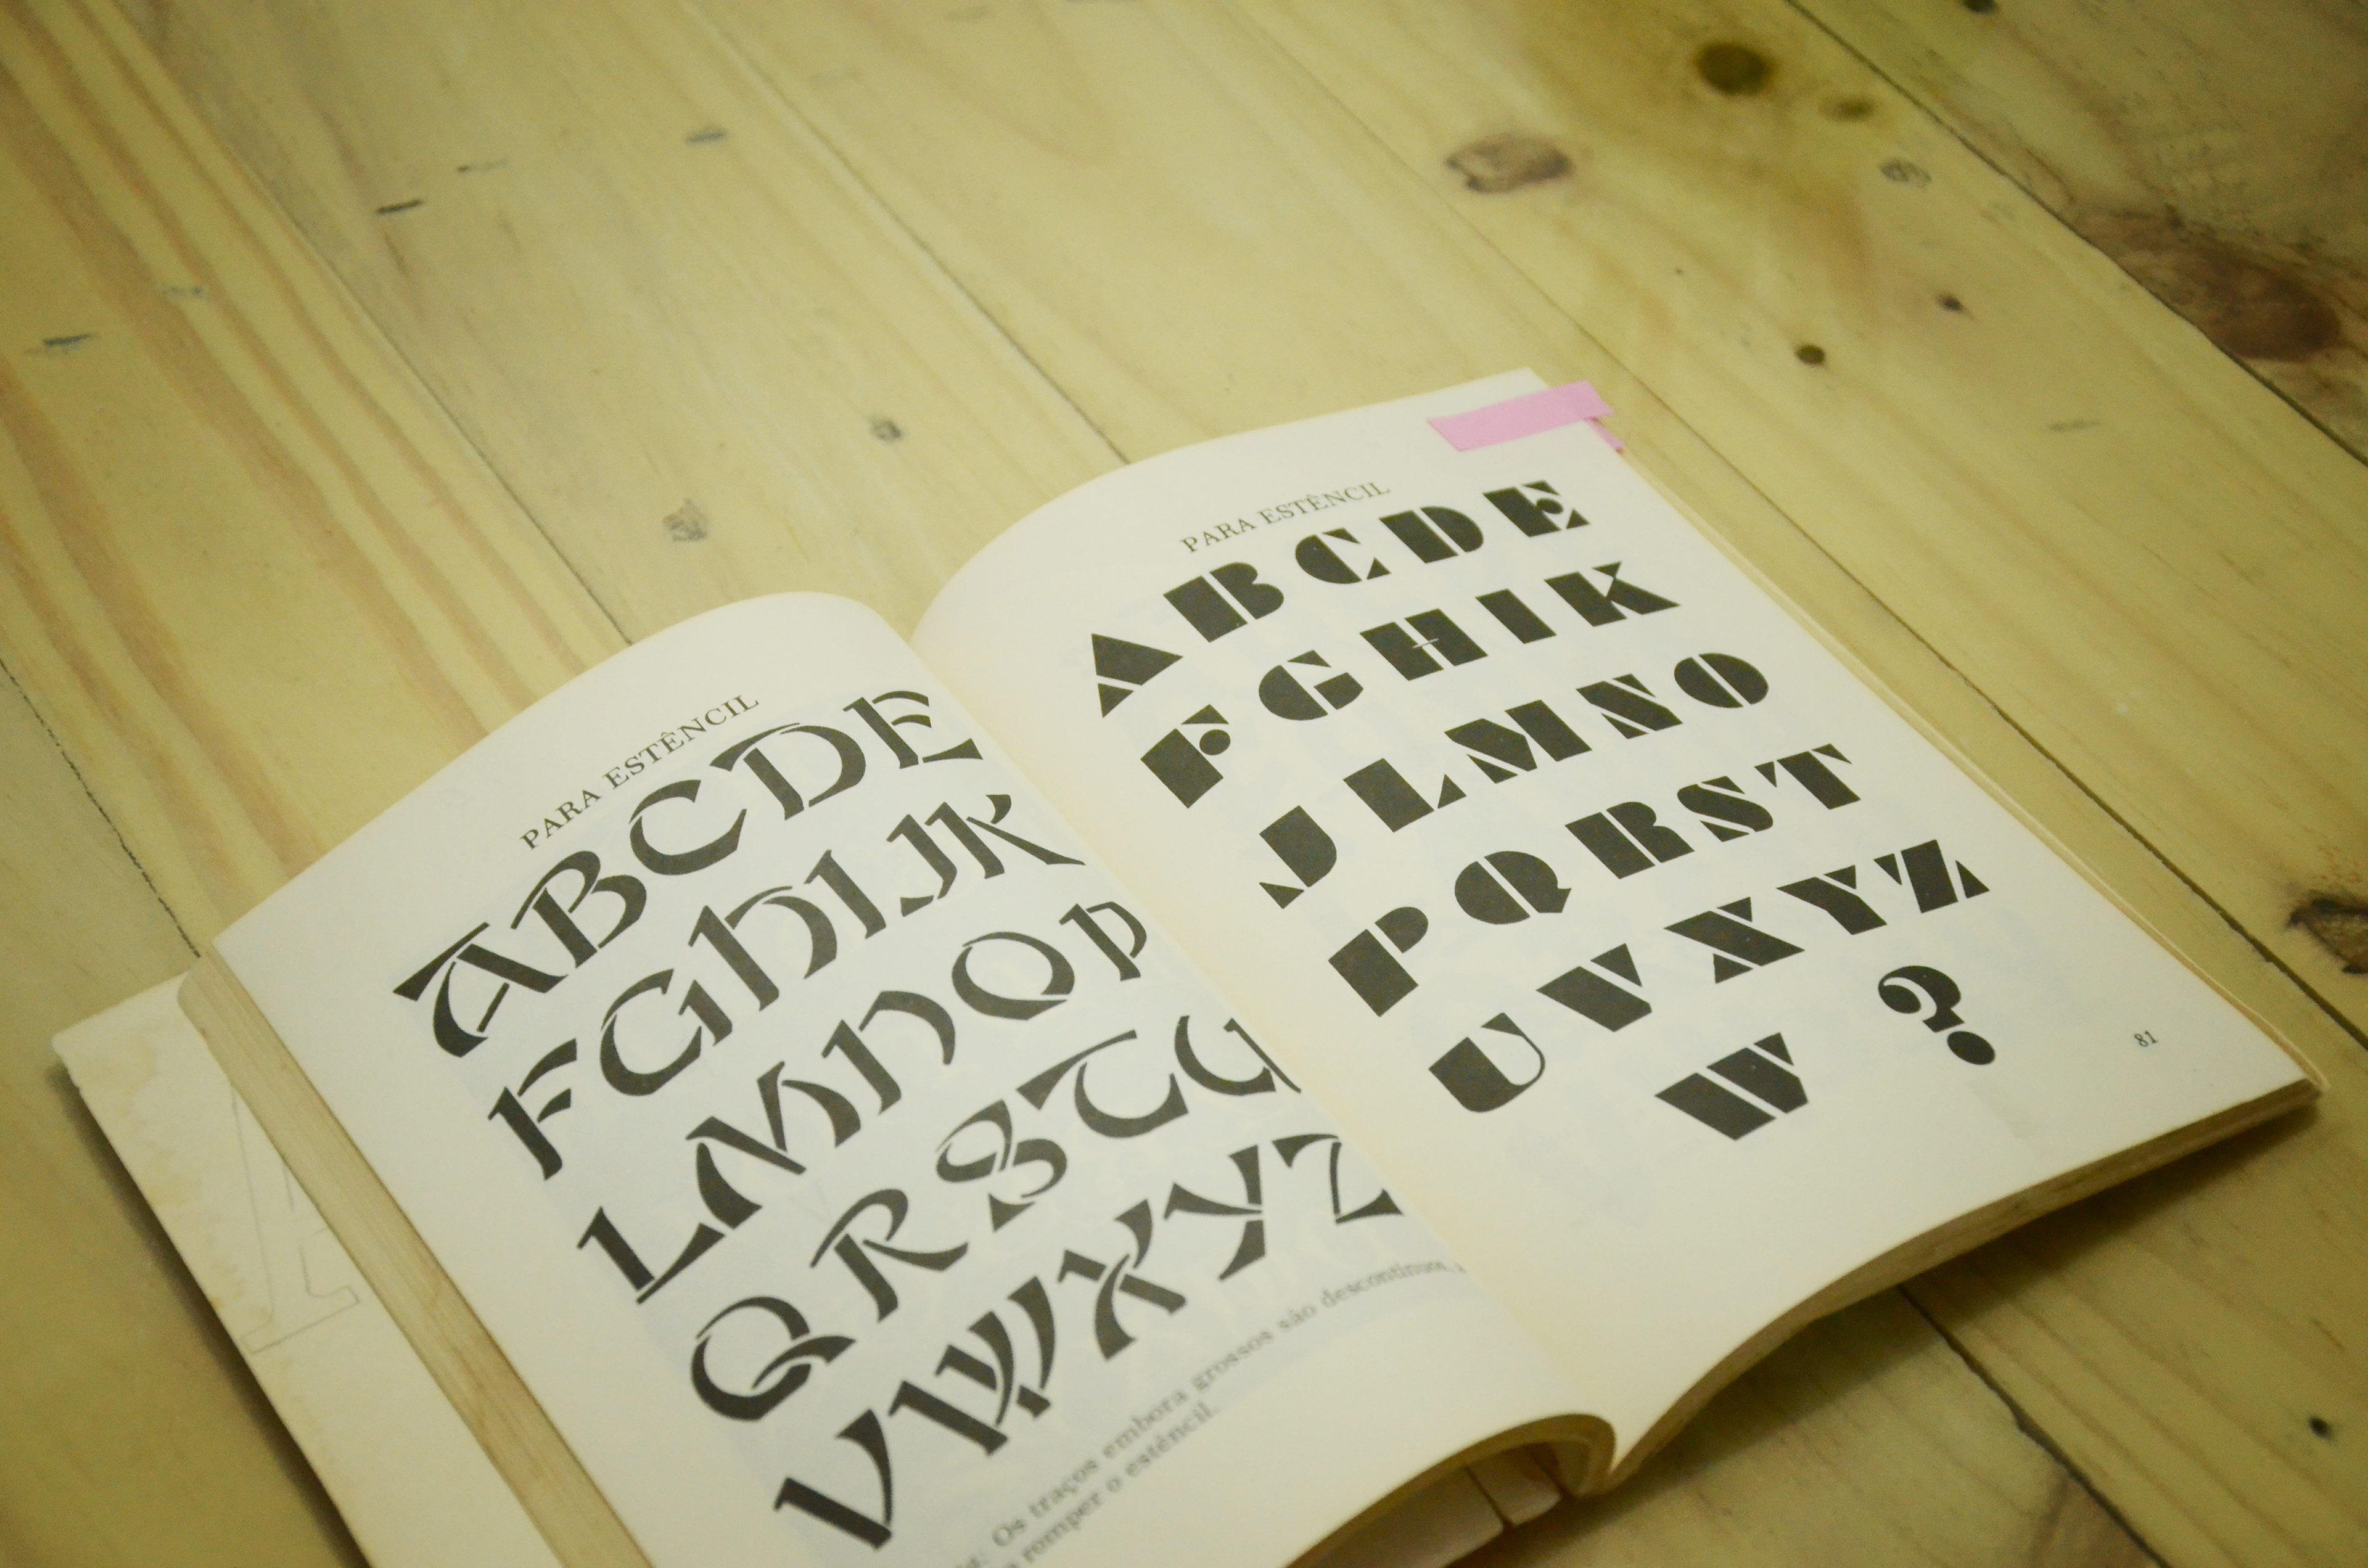 PARA ESTÊNCIL
ABCDE
FGHIJK
LMNOP
QRSTU
VWXYZ
Os traços embora grossos são descontínuos,
romper o estêncil.
PARA ESTÊNCIL
ABCDE
FGHIK
JLMNO
PQRST
UVXYZ
W ?
81